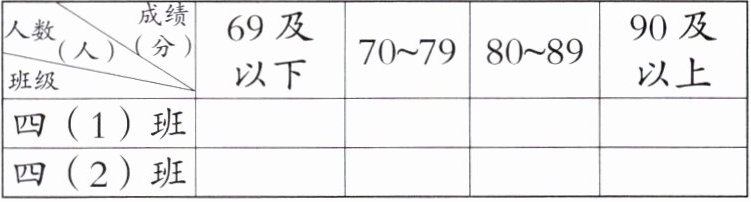 人数(人) 成绩(分) 班级 69及以下 70~79 80~89 90及以上
四(1)班
四(2)班